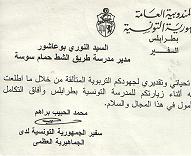 المندوبية العامة
للجمهورية التونسية
بطرابلس
السفير
السيد النوري بوعاشور
مدير مدرسة طريق الشط حمام سوسة
تحياتي وتقديري لجهودكم التربوية المتألقة من خلال ما اطلعت
أثناء زيارتكم للمدرسة التونسية بطرابلس وآفاق التكامل
في هذا المجال و السلام.
محمد الحبيب براهم
سفير الجمهورية التونسية لدى
الجماهيرية العظمى